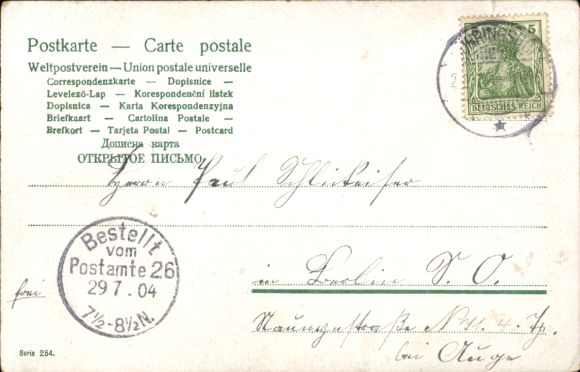 Postkarte — Carte postale
Weltpostverein — Union postale universelle
Correspondenzkarte — Dopisnice —
Levelező-Lap — Korespondenční lístek
Dopisnica — Karta Korespondenzyjna
Briefkaart — Cartolina Postale —
Brefkort — Tarjeta Postal — Postcard
Дописна карта
ОТКРЫТОЕ ПИСЬМО
5
DEUTSCHES REICH
Herrn Paul Schlickeiser
Bestellt
vom
Postamte 26
29 7. 04
7½-8½N.
in Berlin S. O.
frei
Naunynstraße No 41. 4. Tp.
bei Auge
Serie 254.